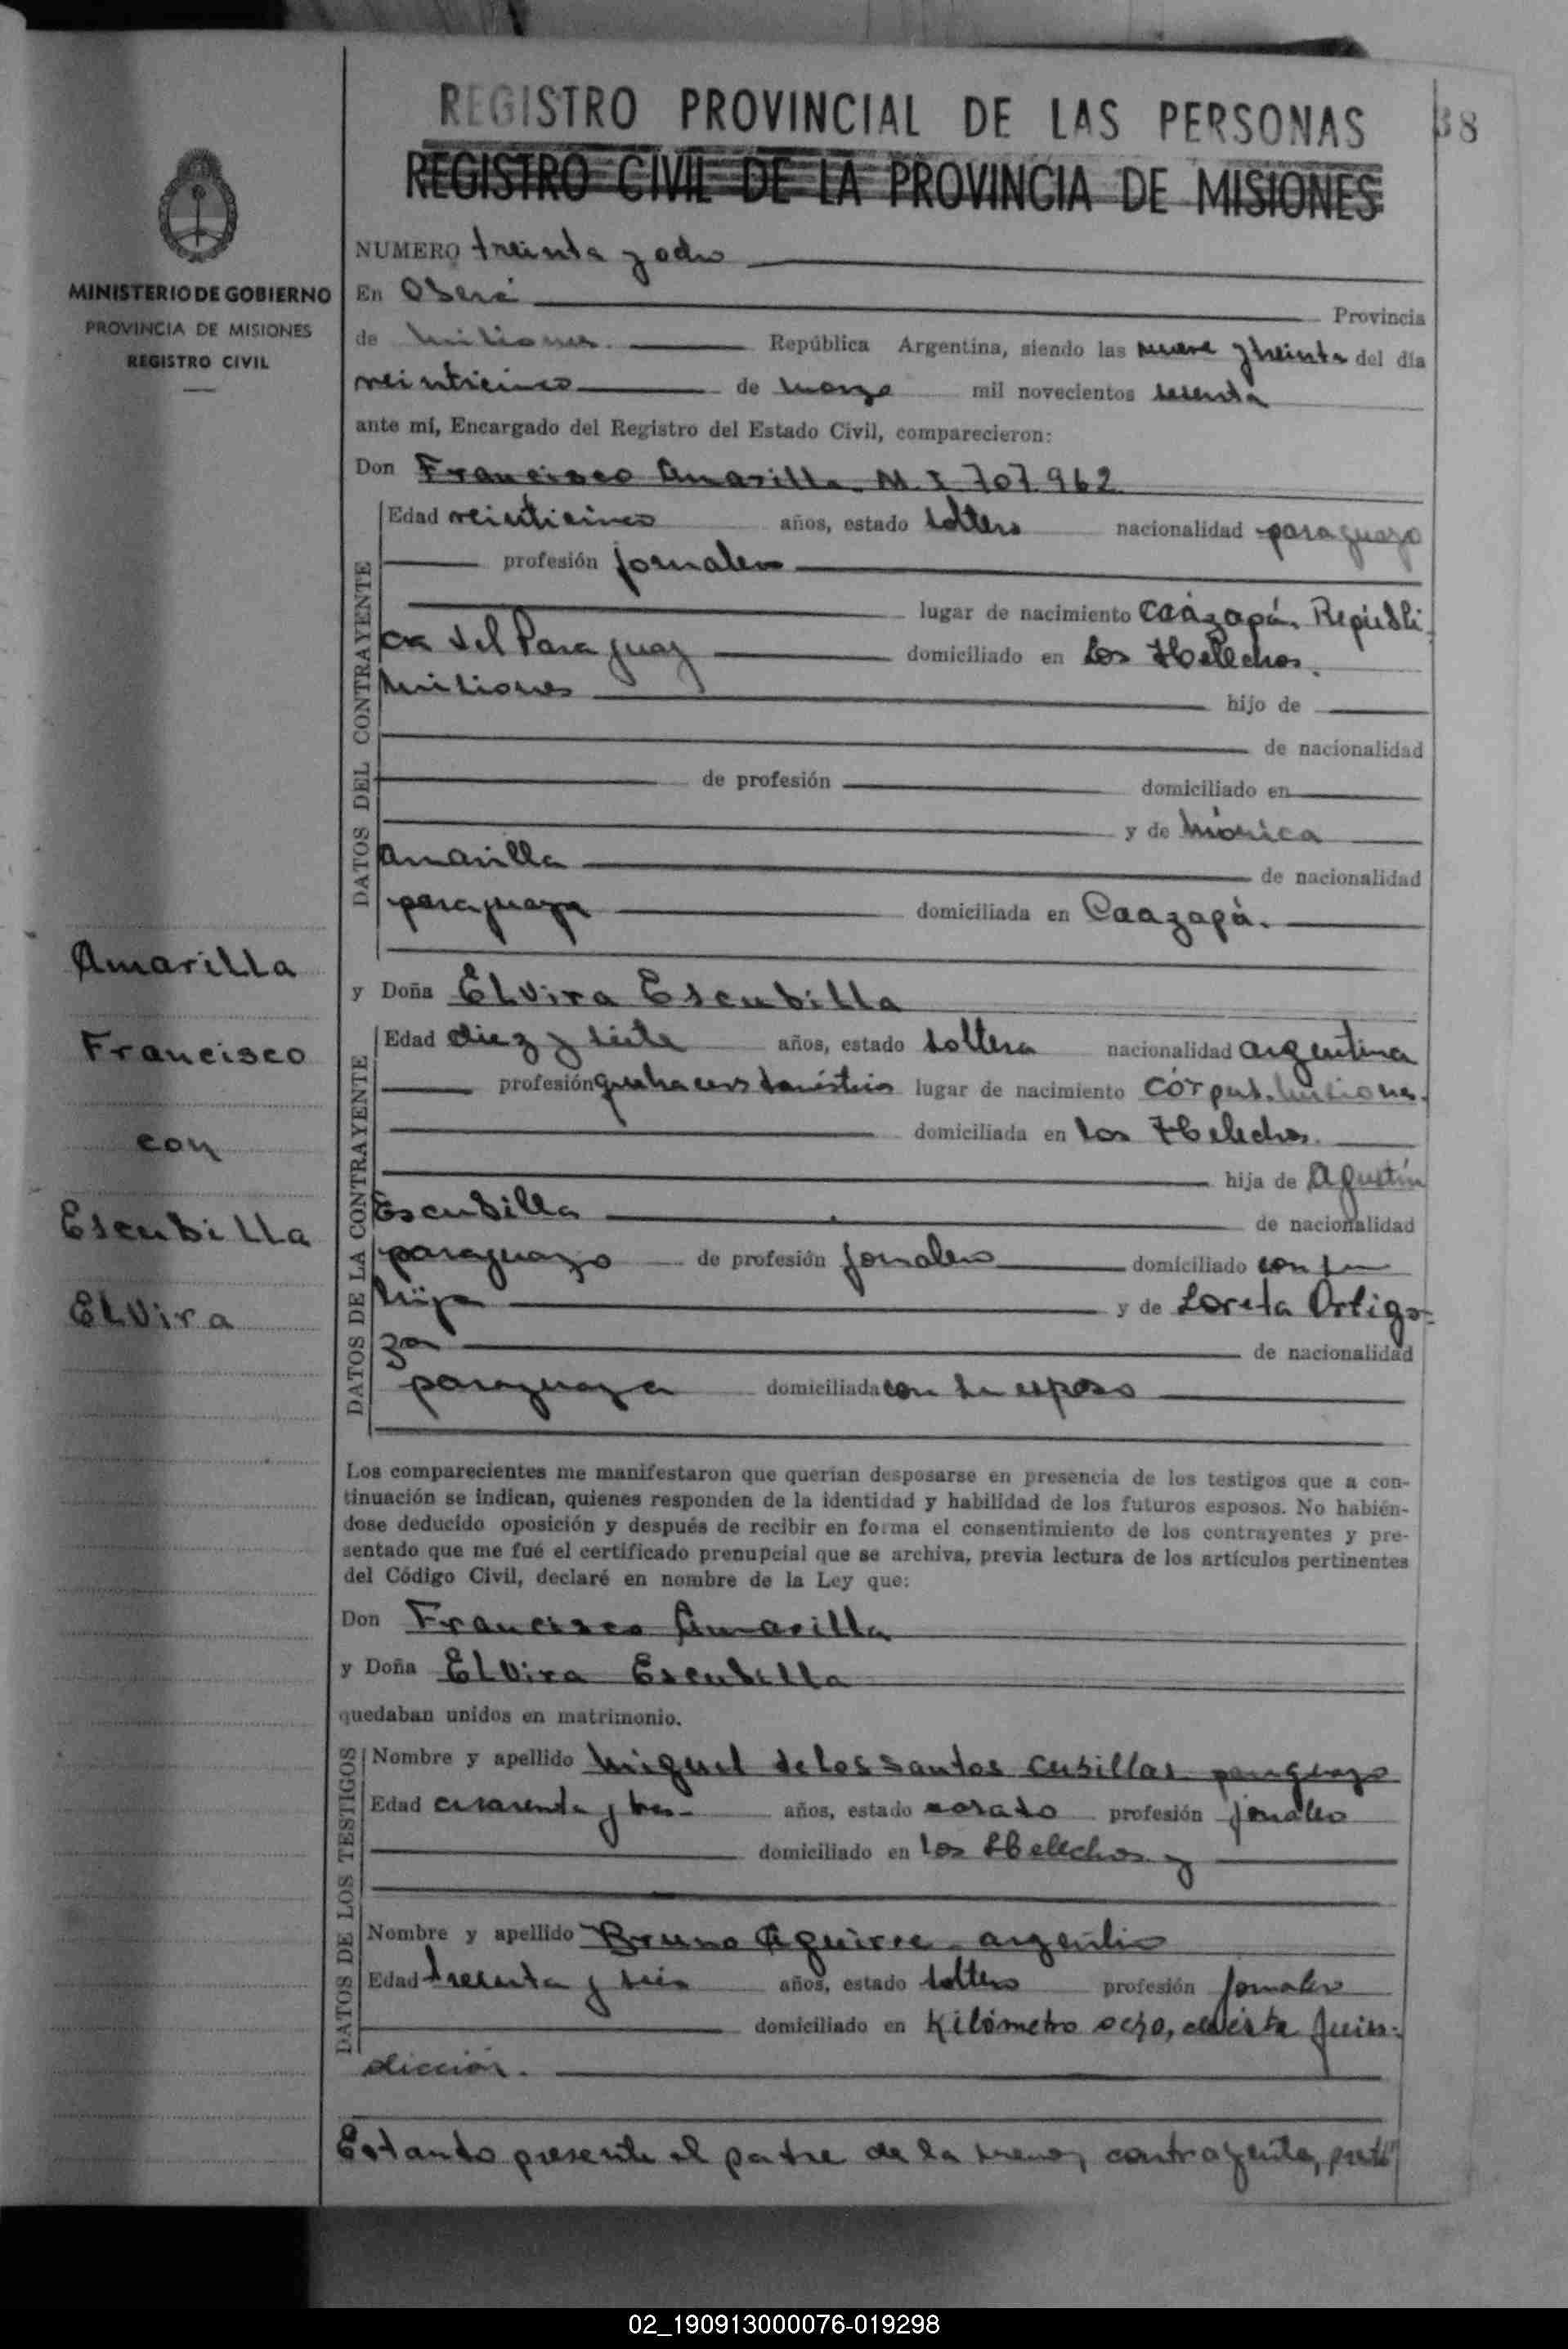 REGISTRO PROVINCIAL DE LAS PERSONAS
38
REGISTRO CIVIL DE LA PROVINCIA DE MISIONES
MINISTERIO DE GOBIERNO
PROVINCIA DE MISIONES
REGISTRO CIVIL
NUMERO treinta y ocho
En Oberá Provincia
de Misiones. República Argentina, siendo las nueve y treinta del día
veinticinco de marzo mil novecientos sesenta
ante mí, Encargado del Registro del Estado Civil, comparecieron:
Don Francisco Amarilla. M. I 707.962
DATOS DEL CONTRAYENTE
Edad veinticinco años, estado soltero nacionalidad paraguayo
profesión jornalero
lugar de nacimiento Caàzapá, Repúbli
ca del Paraguay domiciliado en Los Helechos.
Misiones hijo de
de nacionalidad
de profesión domiciliado en
y de Mónica
Amarilla de nacionalidad
paraguaya domiciliada en Caazapá.
y Doña Elvira Escubilla
DATOS DE LA CONTRAYENTE
Edad diez y siete años, estado soltera nacionalidad argentina
profesión quehaceres domésticos lugar de nacimiento Córpus. Misiones.
domiciliada en Los Helechos.
hija de Agustín
Escubilla de nacionalidad
paraguayo de profesión jornalero domiciliado con su
hija y de Loreta Ortigo-
za de nacionalidad
paraguaya domiciliada con su esposo
Amarilla
Francisco
con
Escubilla
Elvira
Los comparecientes me manifestaron que querían desposarse en presencia de los testigos que a con-
tinuación se indican, quienes responden de la identidad y habilidad de los futuros esposos. No habién-
dose deducido oposición y después de recibir en forma el consentimiento de los contrayentes y pre-
sentado que me fué el certificado prenupcial que se archiva, previa lectura de los artículos pertinentes
del Código Civil, declaré en nombre de la Ley que:
Don Francisco Amarilla
y Doña Elvira Escubilla
quedaban unidos en matrimonio.
DATOS DE LOS TESTIGOS
Nombre y apellido Miguel de los Santos Cubillas paraguayo
Edad cuarenta y tres años, estado casado profesión jornalero
domiciliado en Los Helechos y
Nombre y apellido Bruno Aguirre - argentino
Edad treinta y seis años, estado soltero profesión jornalero
domiciliado en Kilómetro ocho, de ésta juris-
dicción.
Estando presente el padre de la menor contrayente,
02_190913000076-019298